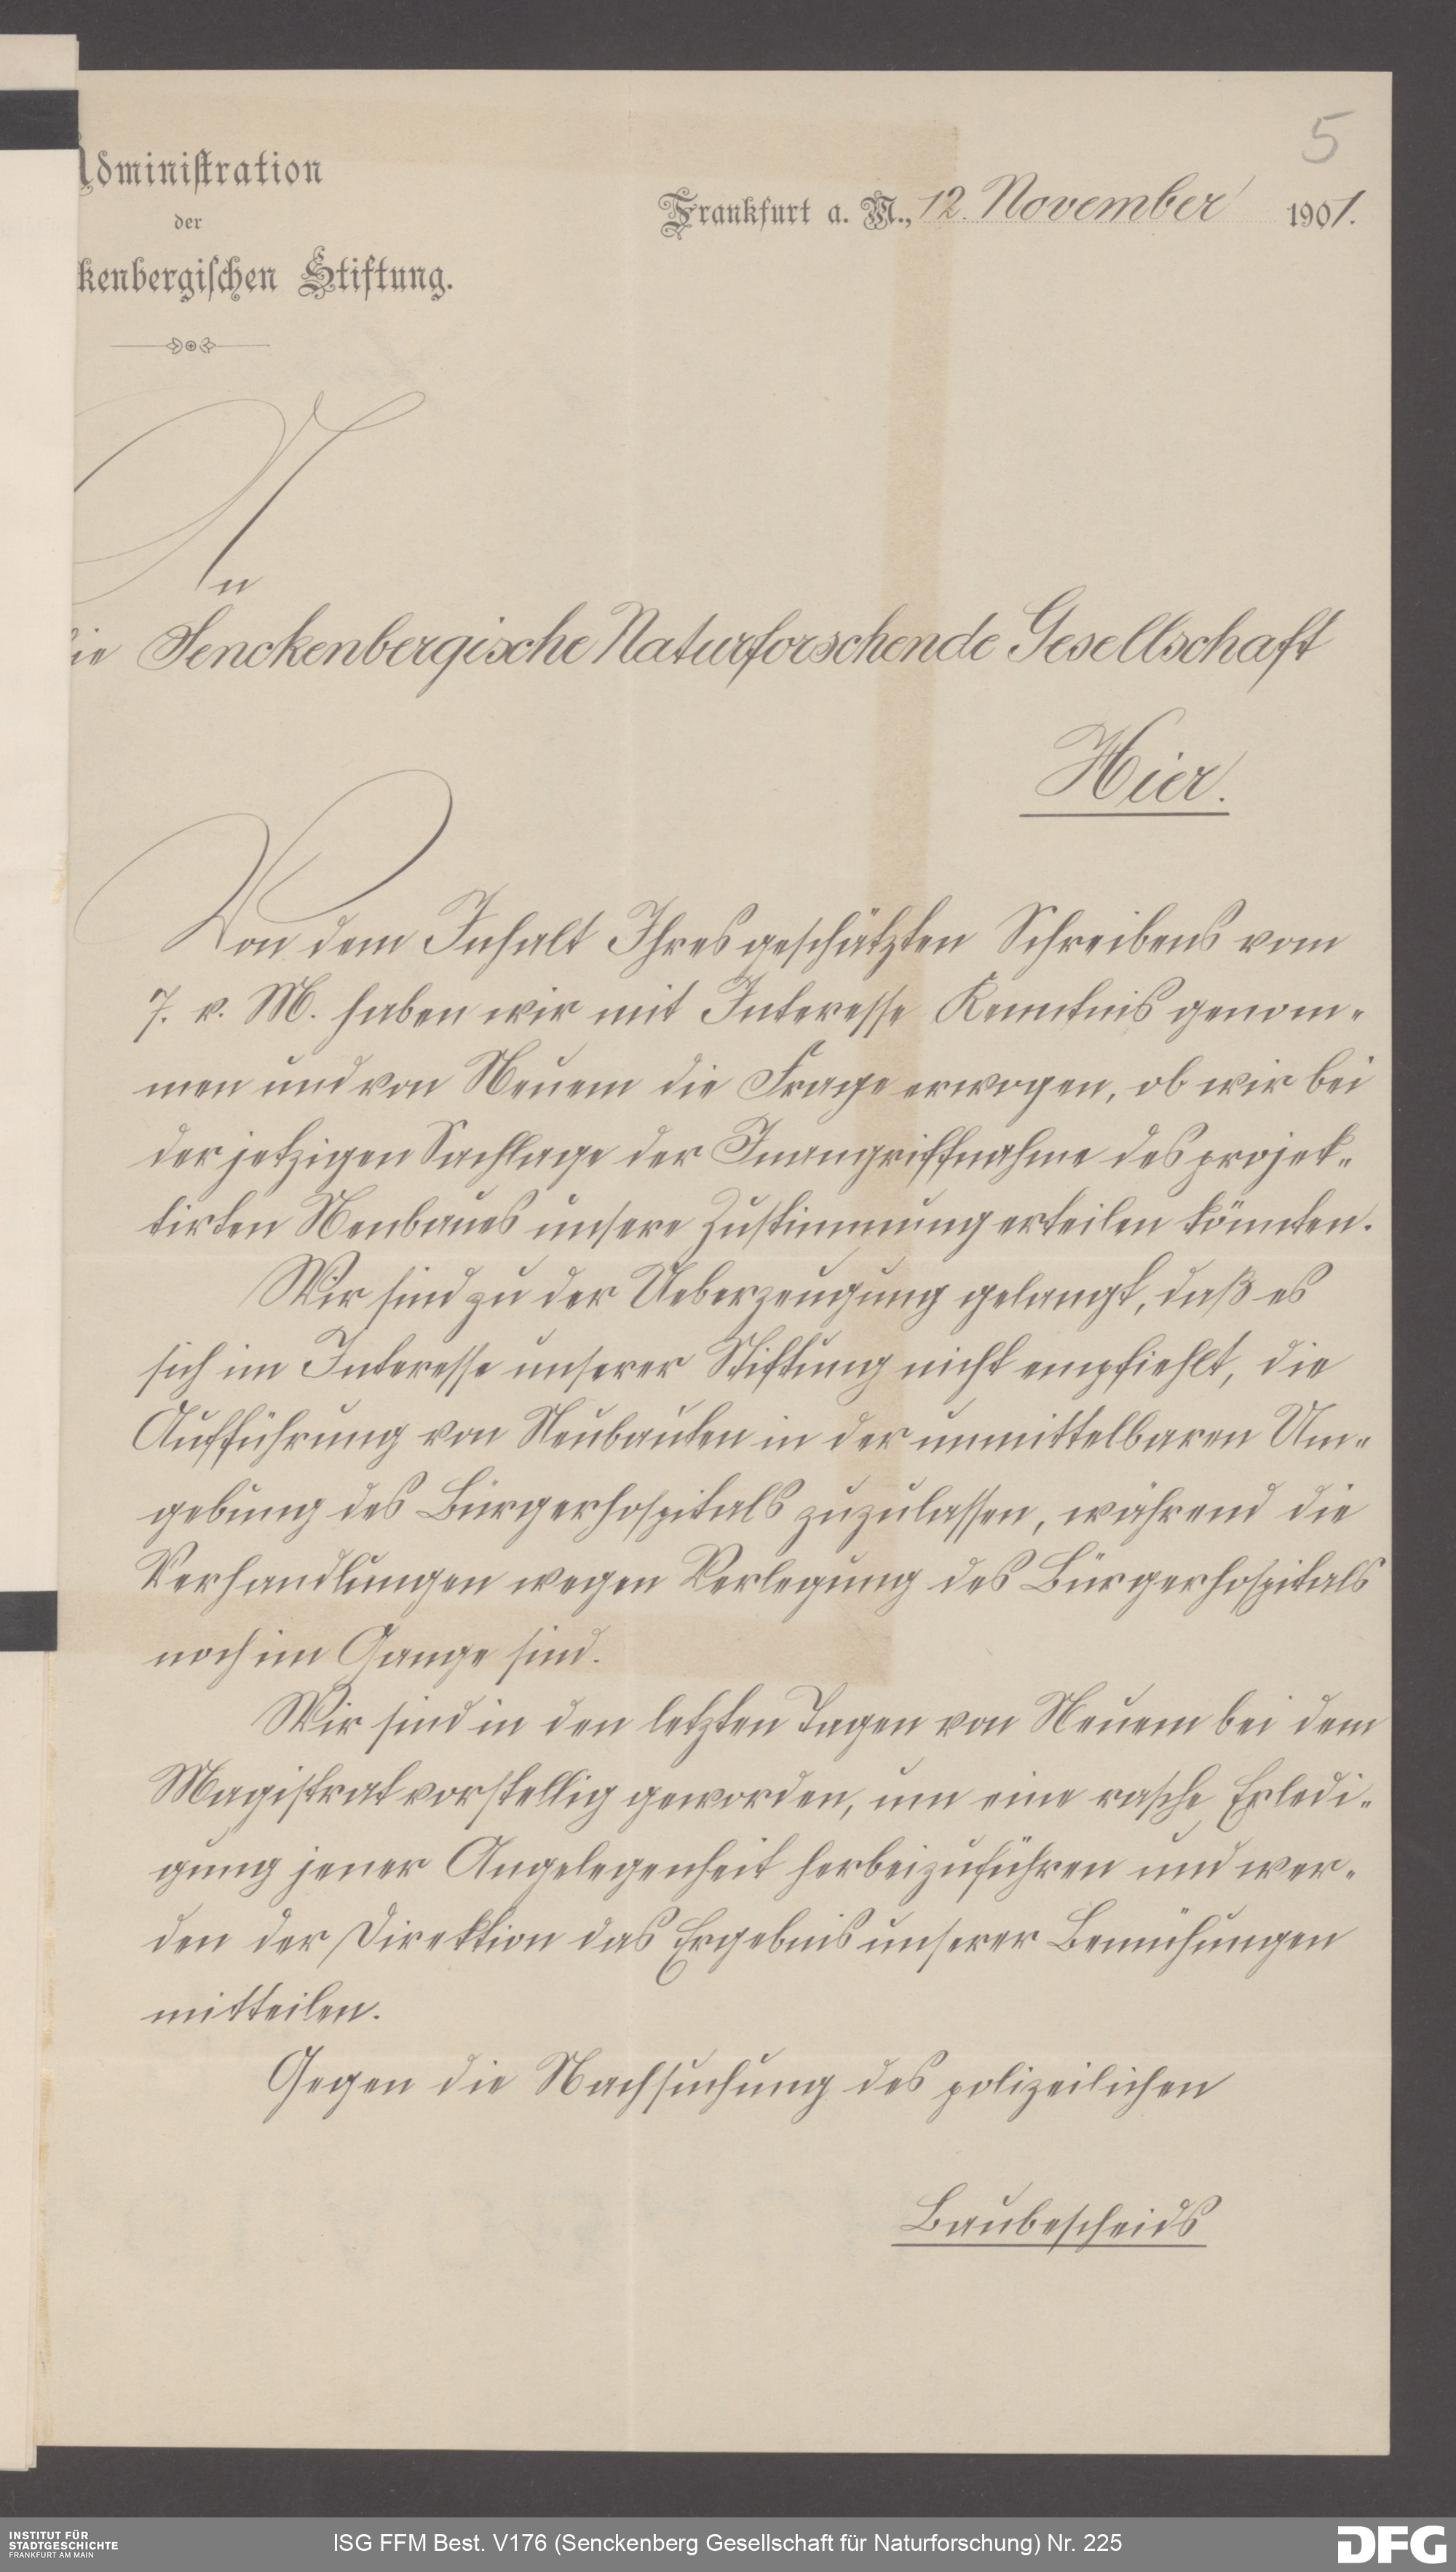 5
Administration
der
kenbergischen Stiftung.
Frankfurt a. M., 12. November 1901.
An
die Senckenbergische Naturforschende Gesellschaft
Hier.
Von dem Inhalt Ihres geschätzten Schreibens vom
7. v. M. haben wir mit Interesse Kenntnis genom-
men und von Neuem die Frage erwogen, ob wir bei
der jetzigen Sachlage der Inangriffnahme des projek-
tirten Neubaues unsere Zustimmung erteilen könnten.
Wir sind zu der Ueberzeugung gelangt, daß es
sich im Interesse unserer Stiftung nicht empfiehlt, die
Aufführung von Neubauten in der unmittelbaren Um-
gebung des Bürgerhospitals zuzulassen, während die
Verhandlungen wegen Verlegung des Bürgerhospitals
noch im Gange sind.
Wir sind in den letzten Tagen von Neuem bei dem
Magistrat vorstellig geworden, um eine rasche Erledi-
gung jener Angelegenheit herbeizuführen und wer-
den der Direktion das Ergebnis unserer Bemühungen
mitteilen.
Gegen die Nachsuchung des polizeilichen
Baubescheids
INSTITUT FÜR
STADTGESCHICHTE
FRANKFURT AM MAIN
ISG FFM Best. V176 (Senckenberg Gesellschaft für Naturforschung) Nr. 225
DFG